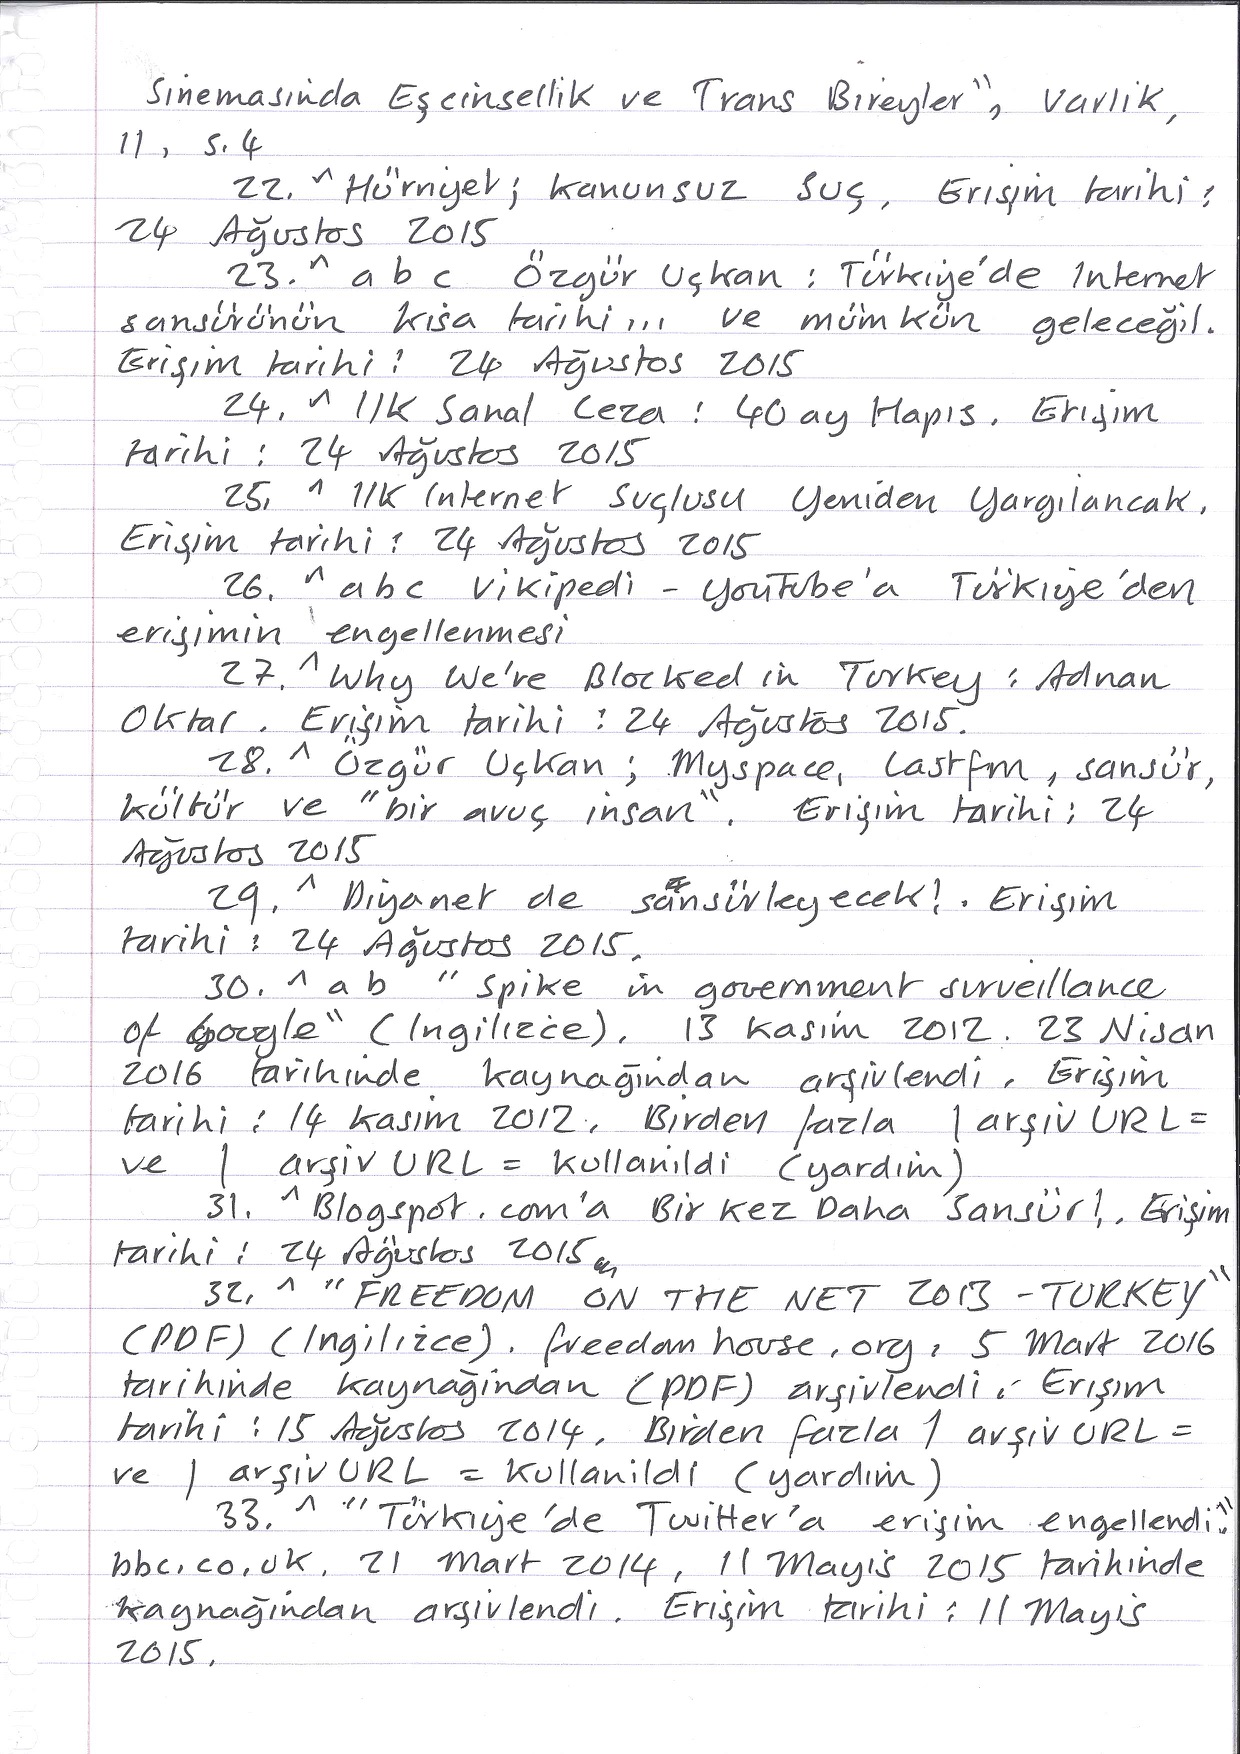 Sinemasinda Eşcinsellik ve Trans Bireyler", Varlik,
11, s.4
22. ^ Hürriyet; Kanunsuz Suç, Erişim tarihi:
24 Ağustos 2015
23. ^ a b c Özgür Uçkan : Türkiye'de Internet
sansürünün kisa tarihi... ve mümkün geleceği!.
Erişim tarihi: 24 Ağustos 2015
24. ^ Ilk Sanal Ceza : 40 ay Hapis. Erişim
tarihi: 24 Ağustos 2015
25. ^ Ilk Internet Suçlusu Yeniden Yargilancak.
Erişim tarihi: 24 Ağustos 2015
26. ^ a b c Vikipedi - YouTube'a Türkiye'den
erişimin engellenmesi
27. ^ Why We're Blocked in Turkey : Adnan
Oktar. Erişim tarihi : 24 Ağustos 2015.
28. ^ Özgür Uçkan ; Myspace, Lastfm, sansür,
kültür ve "bir avuç insan". Erişim tarihi: 24
Ağustos 2015
29. ^ Diyanet de sansürleyecek!. Erişim
tarihi: 24 Ağustos 2015.
30. ^ a b "Spike in government surveillance
of Google" (Ingilizce). 13 Kasim 2012. 23 Nisan
2016 tarihinde kaynağindan arşivlendi. Erişim
tarihi: 14 Kasim 2012. Birden fazla |arşiv URL=
ve | arşiv URL = kullanildi (yardim)
31. ^ Blogspot.com'a Bir Kez Daha Sansür!. Erişim
tarihi: 24 Ağustos 2015
32. ^ "FREEDOM ON THE NET 2013 - TURKEY"
(PDF) (Ingilizce). freedom house.org. 5 Mart 2016
tarihinde kaynağindan (PDF) arşivlendi. Erişim
tarihi: 15 Ağustos 2014. Birden fazla | arşiv URL =
ve | arşiv URL = kullanildi (yardim)
33. ^ "Türkiye'de Twitter'a erişim engellendi".
bbc.co.uk. 21 Mart 2014, 11 Mayis 2015 tarihinde
kaynağindan arşivlendi. Erişim tarihi: 11 Mayis
2015.